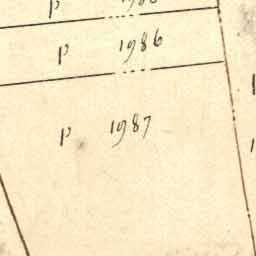 p
p 1986
p 1987